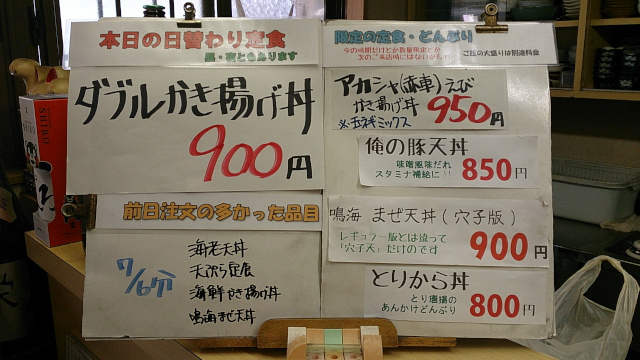 本日の日替わり定食
昼・夜ともあります
ダブルかき揚げ丼
900円
前日注文の多かった品目
7/6分
海老天丼
天ぷら定食
海鮮かき揚げ丼
鳴海まぜ天丼
限定の定食・どんぶり
今の時期だけとか数量限定とか
次のご来店時にはないかも
ご飯の大盛りは別途料金
アカシャ(赤車)えび
かき揚げ丼 950円
※玉ネギミックス
俺の豚天丼
味噌風味だれ
スタミナ補給に!! 850円
鳴海 まぜ天丼(穴子版)
レギュラー版とは違って
「穴子天」だけのです 900円
とりから丼
とり唐揚の
あんかけどんぶり 800円